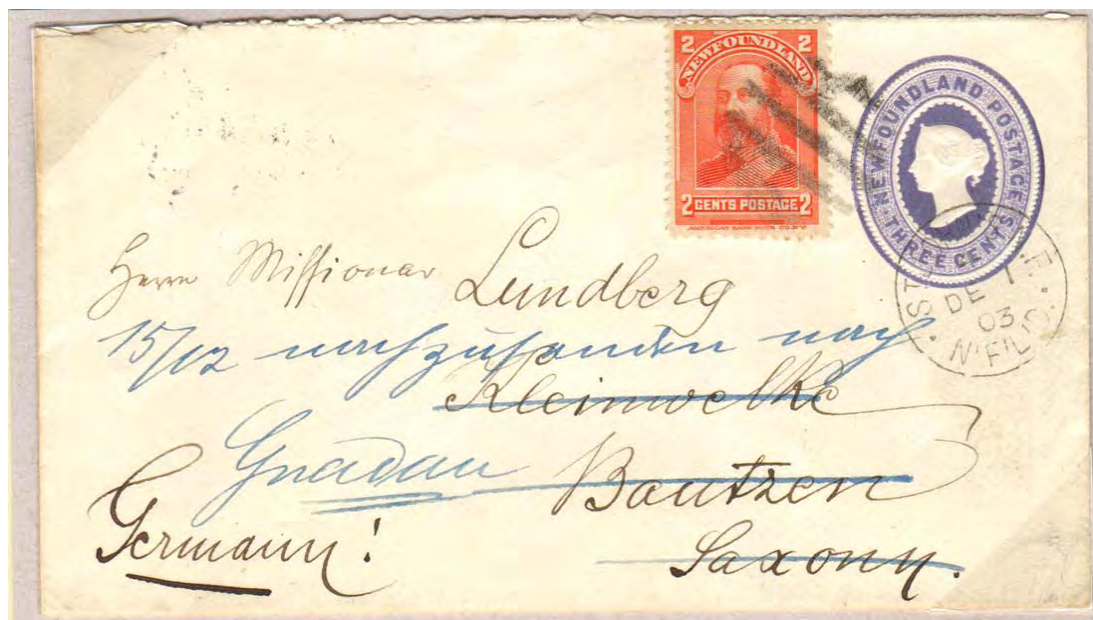 2 2
NEWFOUNDLAND
2 CENTS POSTAGE 2
NEWFOUNDLAND POSTAGE
THREE CENTS
DE 1
03
N'F'L'D.
Herrn Missionar Lundberg
15/12 nachzusenden nach
Kleinwelke
Gnadau Bautzen
Germany!
Saxony.